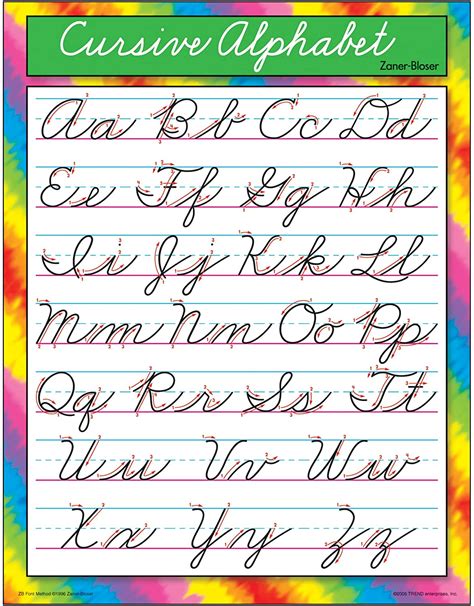 Cursive Alphabet
Zaner-Bloser
Aa Bb Cc Dd
Ee Ff Gg Hh
Ii Jj Kk Ll
Mm Nn Oo Pp
Qq Rr Ss Tt
Uu Vv Ww
Xx Yy Zz
ZB Font Method ©1996 Zaner-Bloser ©2005 TREND enterprises, Inc.